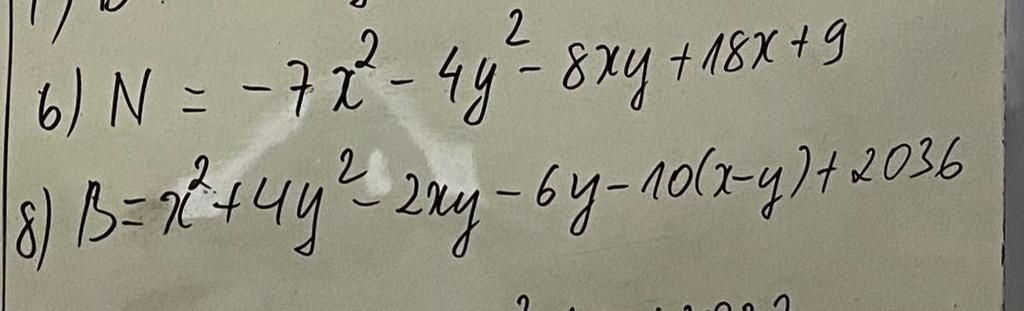 6) N = -7x² - 4y² - 8xy + 18x + 9
8) B = x² + 4y² - 2xy - 6y - 10(x-y) + 2036